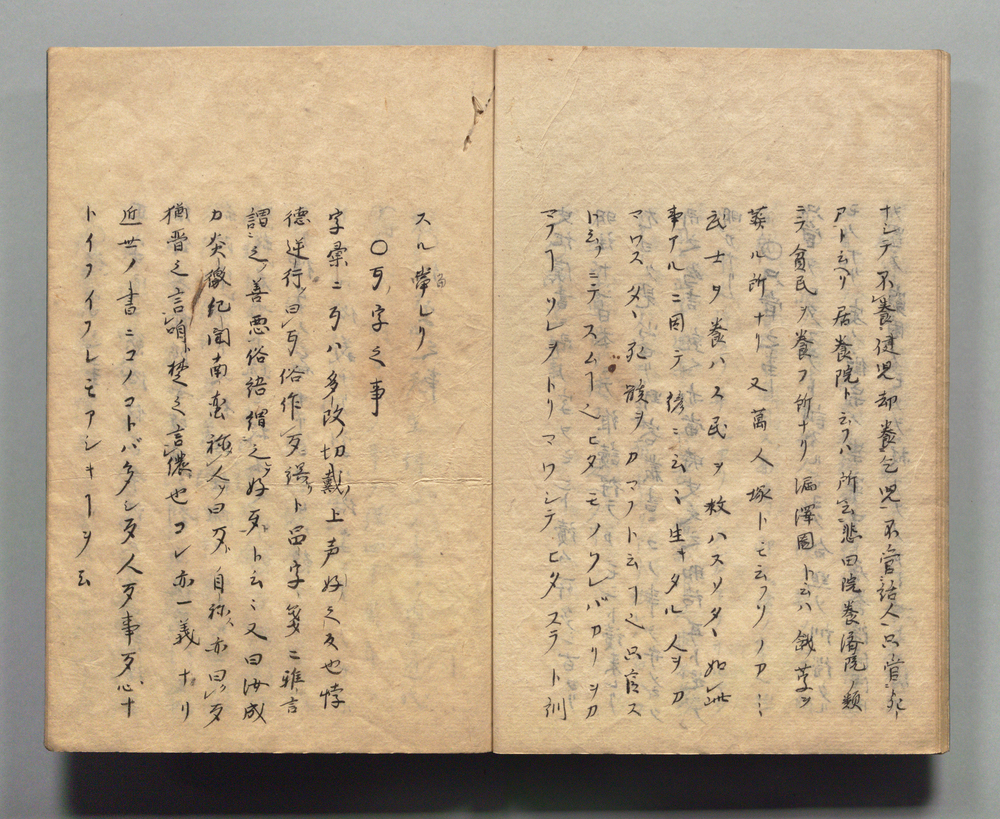 ナシテ不養健児却養乞児不管活人只管死
アト云ヘリ居養院ト云フハ所云悲田院養済院ノ類
ミテ貧民ヲ養フ所ナリ漏澤園ト云ハ餓莩ヲ
葬ル所ナリ又萬人塚トモ云フソノアミ
武士ヲ養ハス民ヲ救ハスソタヽ如此
事アルニ因テ終ニ云ミ生キタル人ヲカ
マワスタヽ死骸ヲカマフト云フ之只官ス
マアヿソレヲトリマワシテヒタスラト訓
スル當レリ
〇歹字之事
字彙ニ歹ハ多改切戴上声好之反也悖
徳逆行曰歹俗作歹誤ト品字箋ニ雅言
謂之善悪俗語謂之好歹ト云ミ又曰汝成
カ炎徼紀聞南蛮称人曰歹自称亦曰歹
猶晋之言咱楚之言儂也コレ亦一義ナリ
近世ノ書ニコノコトバ多シ歹人歹事歹心ナ
トイフイフレモアシキヿヲ云